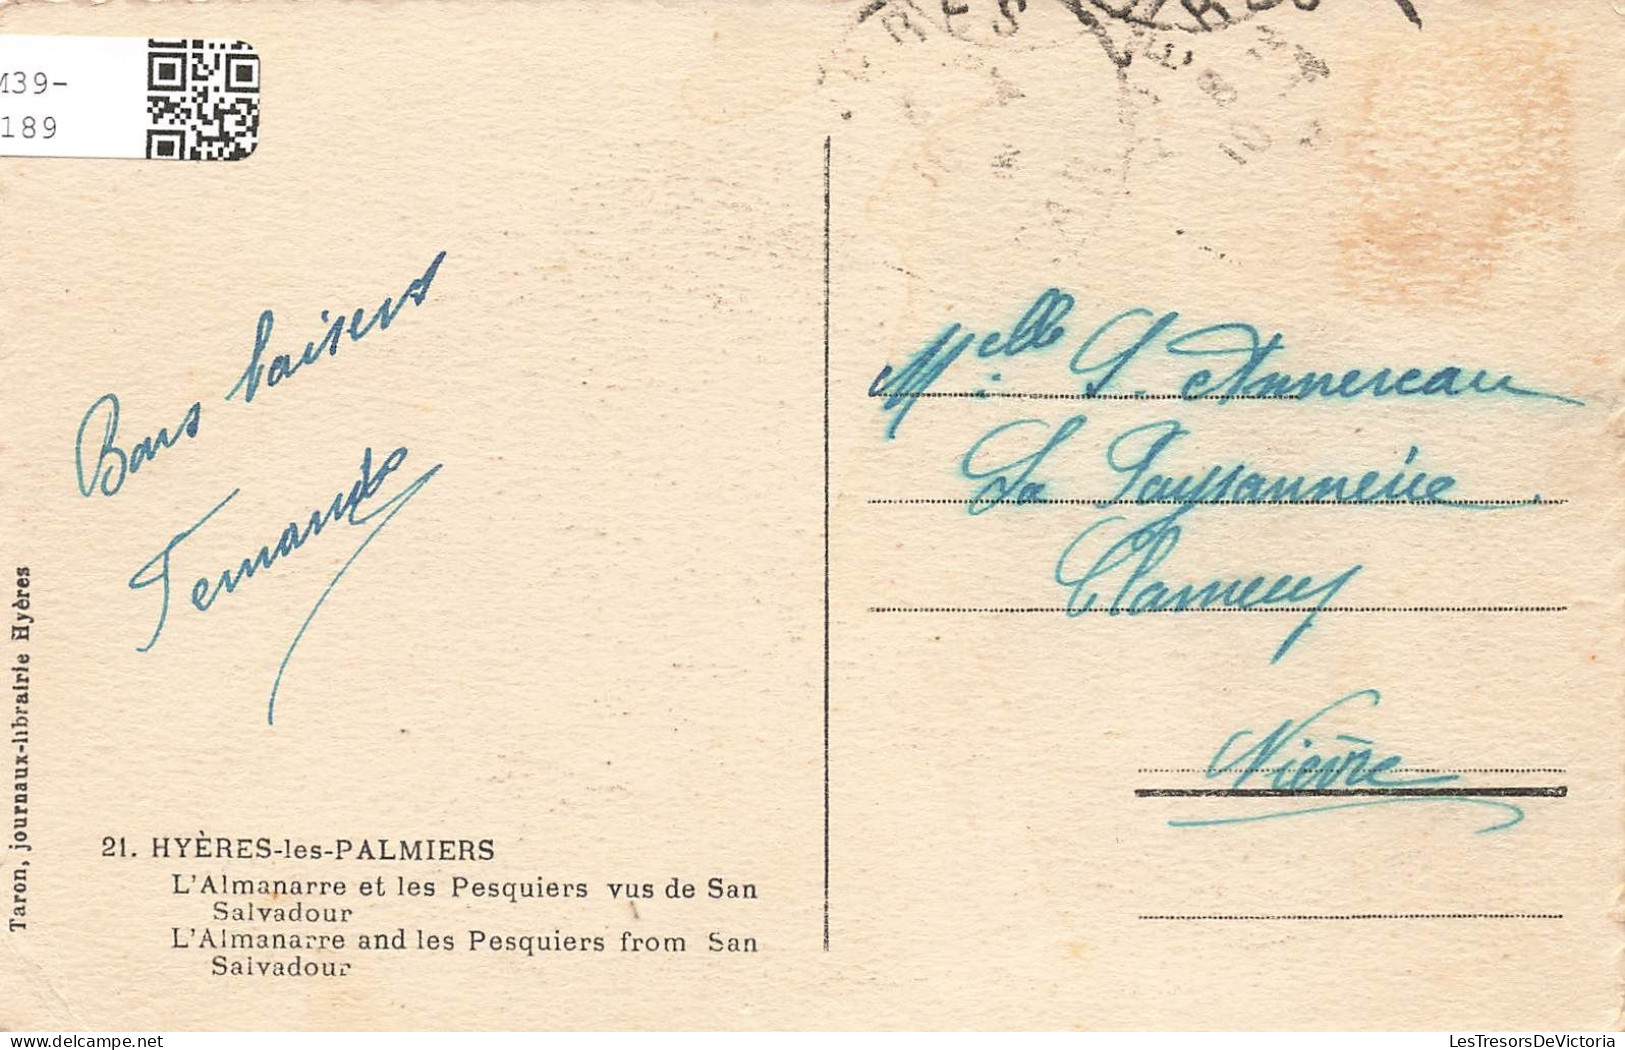 M39-
189
Bons baisers
Fernande
Melle S. Annereau
La Paysannerie
Clamecy
Nièvre
Taron, journaux-librairie Hyères
21. HYÈRES-les-PALMIERS
L'Almanarre et les Pesquiers vus de San
Salvadour
L'Almanarre and les Pesquiers from San
Salvadour
LesTresorsDeVictoria
www.delcampe.net